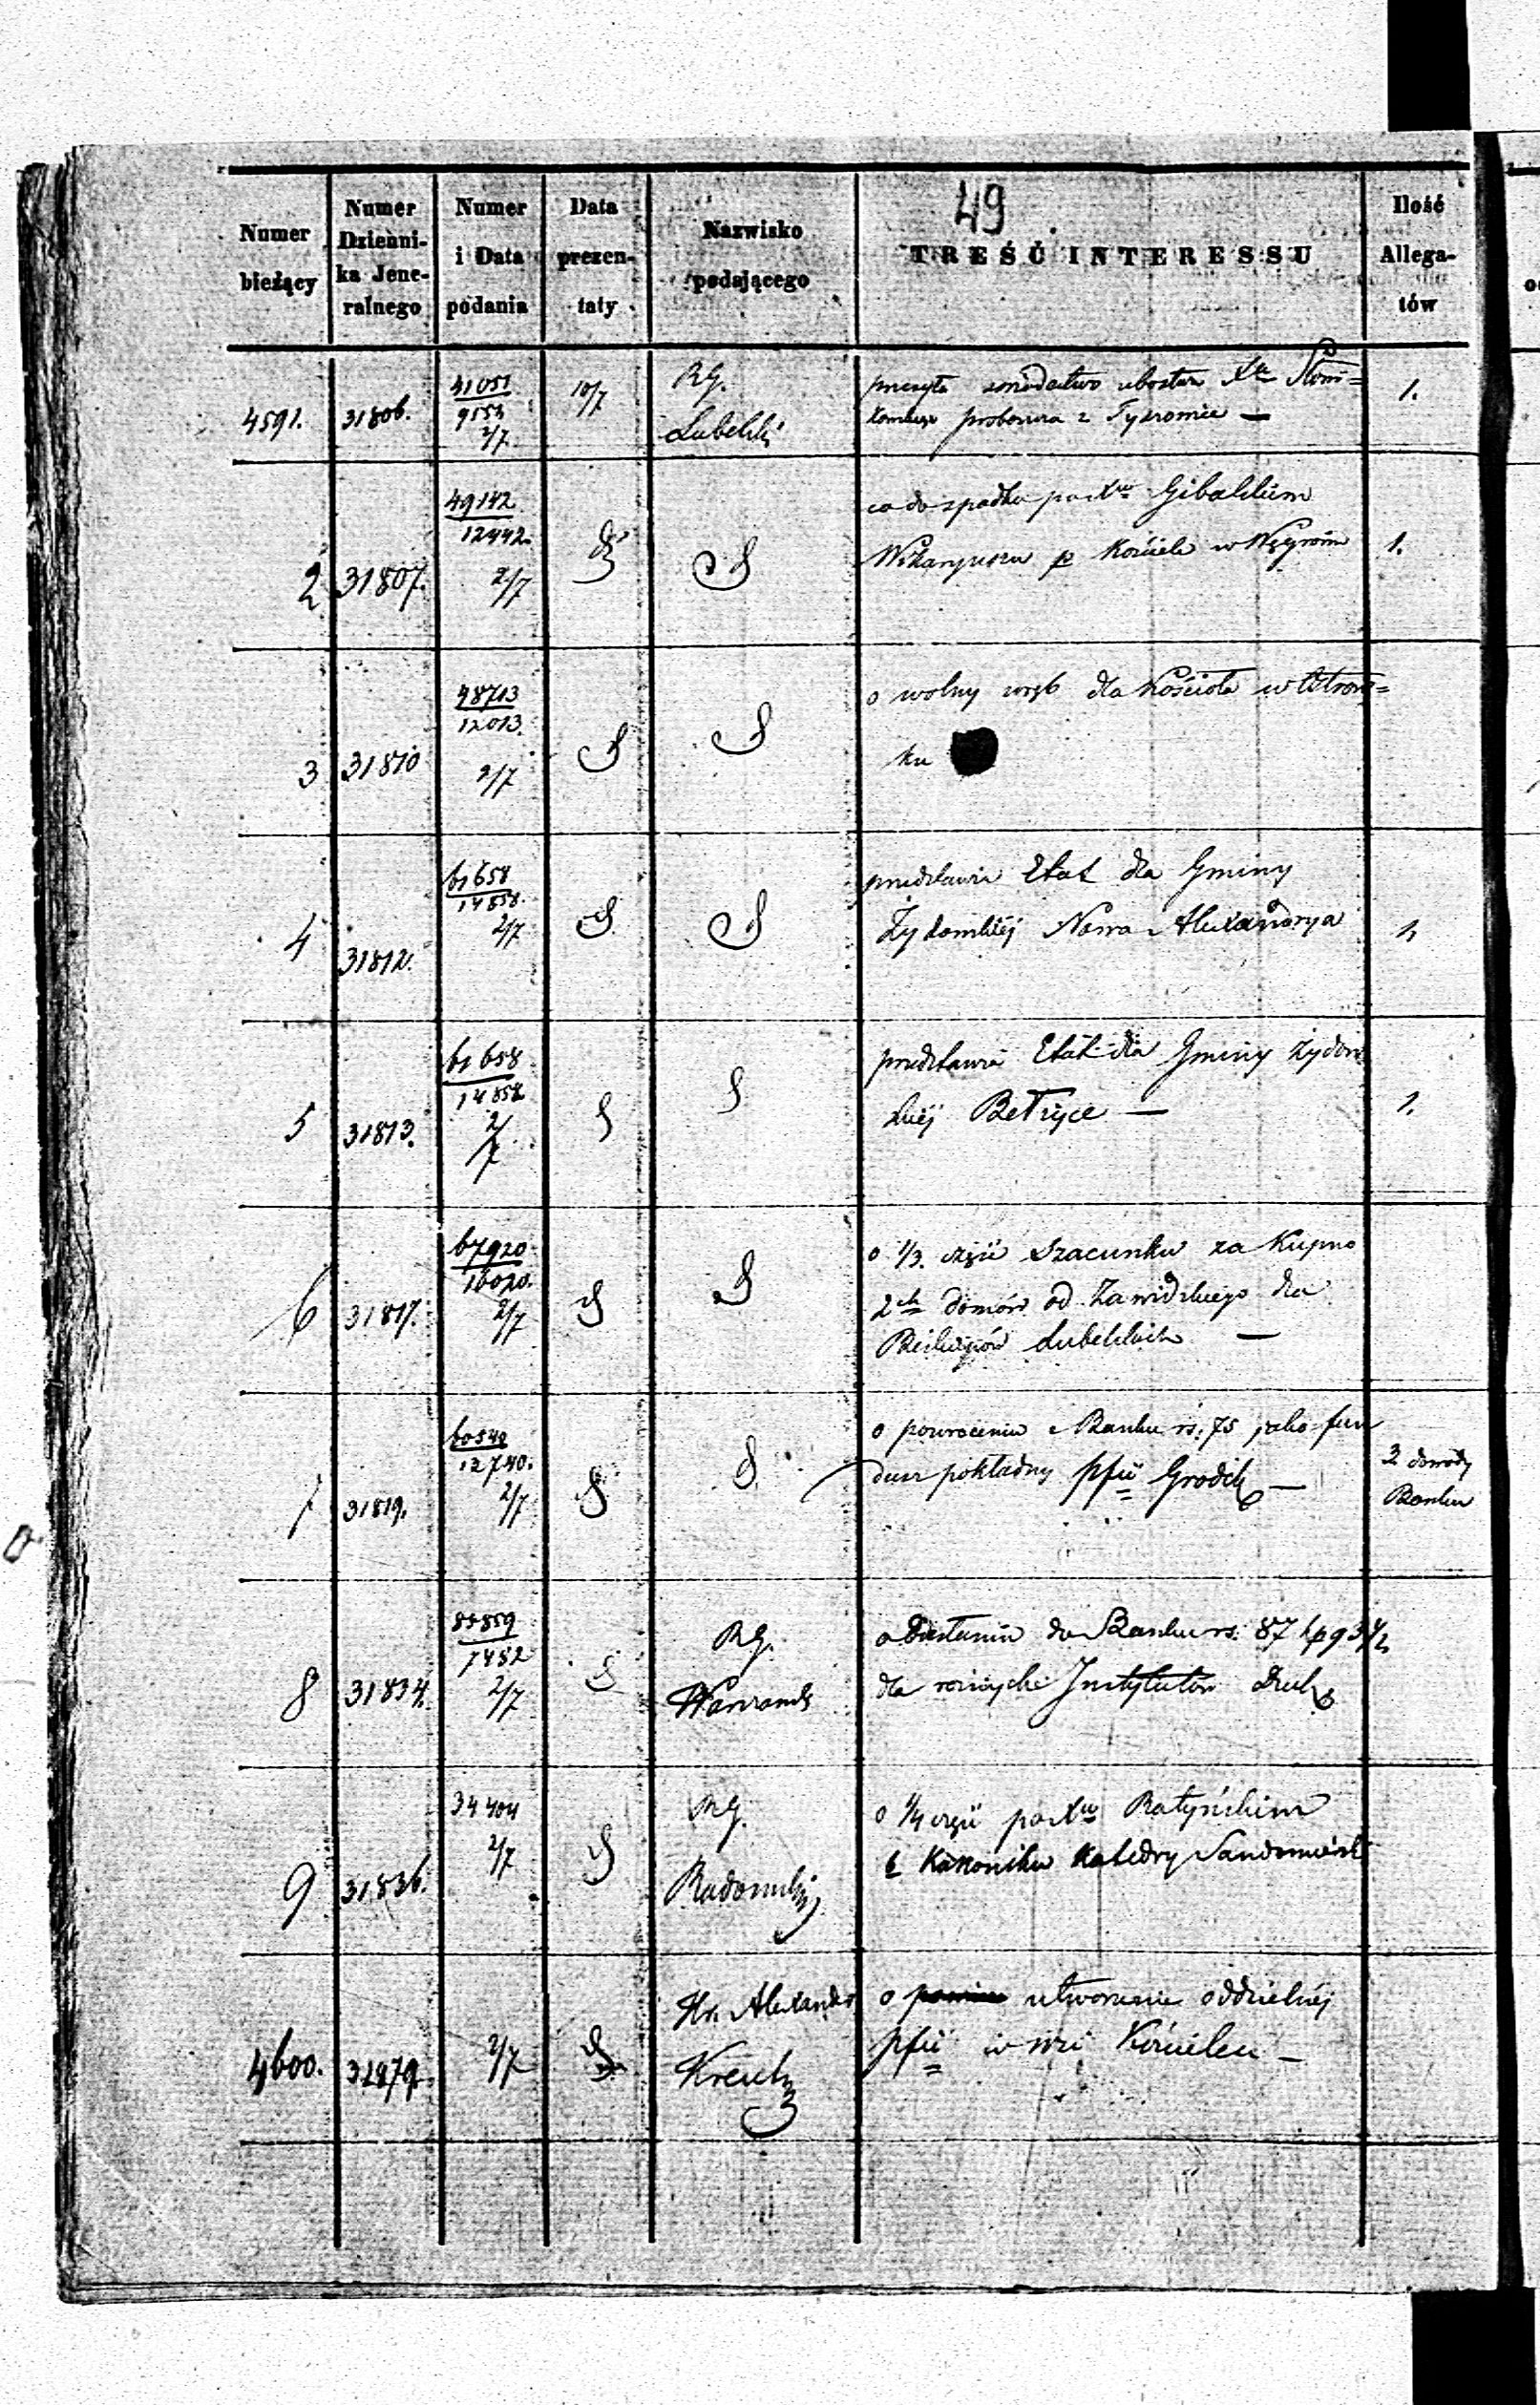 49
Numer bieżący | Numer Dzienni-ka Jene-ralnego | Numer i Data podania | Data prezen-taty | Nazwisko podającego | TREŚĆ INTERESSU | Ilość Allega-tów
4591. | 31806. | 41051 / 9553 2/7 | 10/7 | RG. Lubelski | 1.
przesyła świadectwo ubóstwa Xa
proboszcza z
2 | 31807. | 49142 / 12442. 2/7 | 1.
co do spadku po Xu Gibalskim
Wikaryuszu Kościele w Węgrowie
3 | 31810 | 48713 / 12013. 2/7
o wolny wrąb dla Kościoła w
ku
4 | 31812. | 61658 / 14858. 2/7 | 1
przedstawia Etat dla Gminy
Żydowskiej Nowa Alexandrya
5 | 31813. | 61658 / 14858 2/7 | 1.
przedstawia Etat dla Gminy Żydow
skiej Bełżyce —
6 | 31817. | 67920 / 16020. 2/7
o 1/3. części szacunku za Kupno
2ch domów od Zawidzkiego dla
Lubelskich —
7 | 31819. | 60540 / 12740. 2/7 | 2 dowody Banku
o powrócenie z Banku rs: 75 jako fun
dusz pokładny pfii —
8 | 31834. | 7482 2/7 | RG. Warszawski
do Banku rs. 87 kp 93 1/2
dla różnych Instytutów Duch
9 | 31836. | 34404 2/7 | RG. Radomski
o 1/4 części po Xu Ratyńskim
b Kanoniku Katedry Sandomiersk
4600. | 31879 | 2/7 | Hr. Alexander Kreutz
o utworzenie oddzielnéj
pfii w wsi Kościelcu —